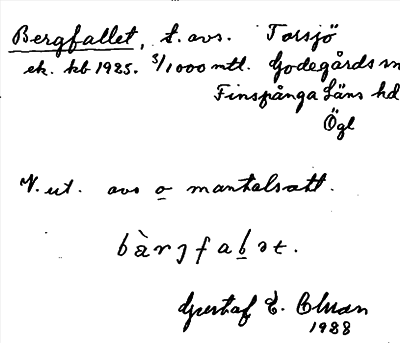 Bergfallet, t. avs. Torsjö
ek. kb 1925. 3/1000 mtl. Godegårds sn
Finspånga Läns hd
Ögl
N. ut. avs o mantalsatt.
bàrɟfaḇət.
Gustaf E. Olsson
1988